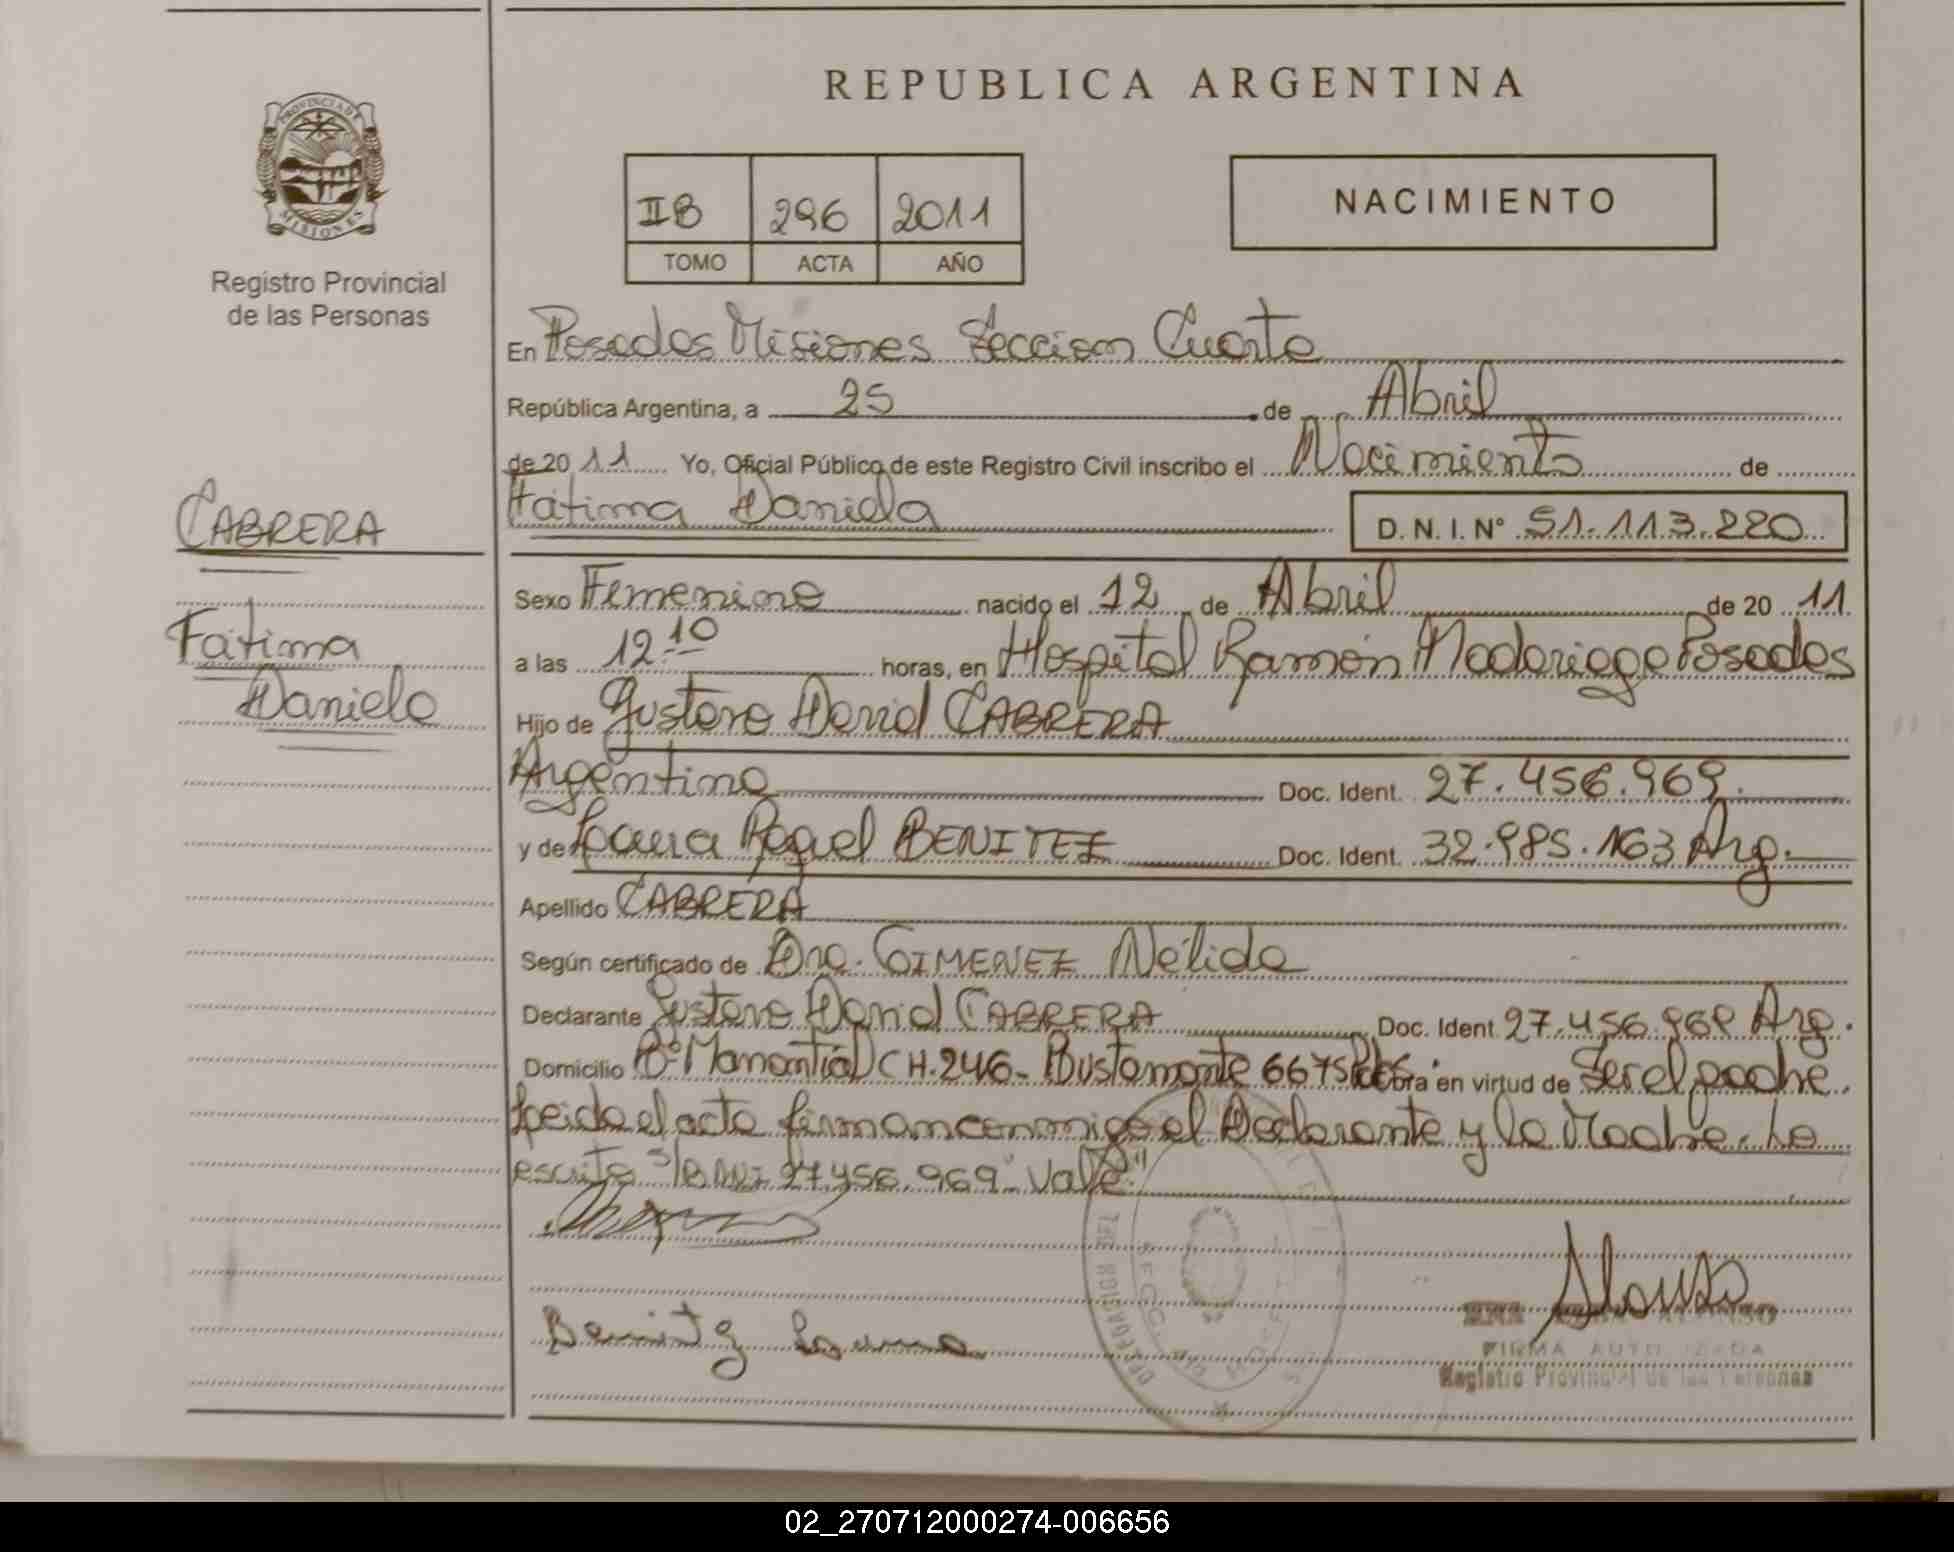 REPUBLICA ARGENTINA
PROVINCIA DE
MISIONES
Registro Provincial
de las Personas
IIB 296 2011
TOMO ACTA AÑO
NACIMIENTO
En Posadas Misiones Sección Cuarta
República Argentina, a 25 de Abril
de 2011 Yo, Oficial Público de este Registro Civil inscribo el Nacimiento de
Fátima Daniela D. N. I. Nº 51.113.220
CABRERA
Fátima
Daniela
Sexo Femenino nacido el 12 de Abril de 20 11
a las 12:10 horas, en Hospital Ramón Madariaga Posadas
Hijo de Gustavo David CABRERA
Argentino Doc. Ident. 27.456.969.
y de Laura Raquel BENITEZ Doc. Ident. 32.985.163 Arg.
Apellido CABRERA
Según certificado de Dra. GIMENEZ Nélida
Declarante Gustavo David CABRERA Doc. Ident. 27.456.969 Arg.
Domicilio Bº Manantial CH.246- Bustamante 6675 Pdas. Obra en virtud de Ser el padre.
Leida el acta firman conmigo el Declarante y la Madre. Lo
escrito S/B DNI 27.456.969 "Vale"
Benitez Laura
Alonso
FIRMA AUTORIZADA
Registro Provincial de las Personas
02_270712000274-006656